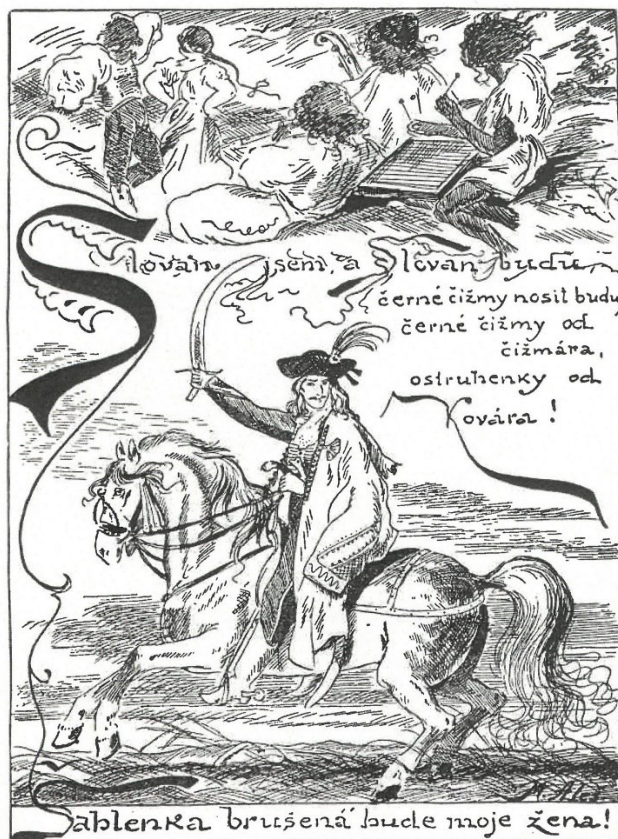 Slovan jsem, a Slovan budu
černé čižmy nosit budu
černé čižmy od
čižmára,
ostruhenky od
Kovára !
M. Aleš
Šablenka brušená bude moje žena!